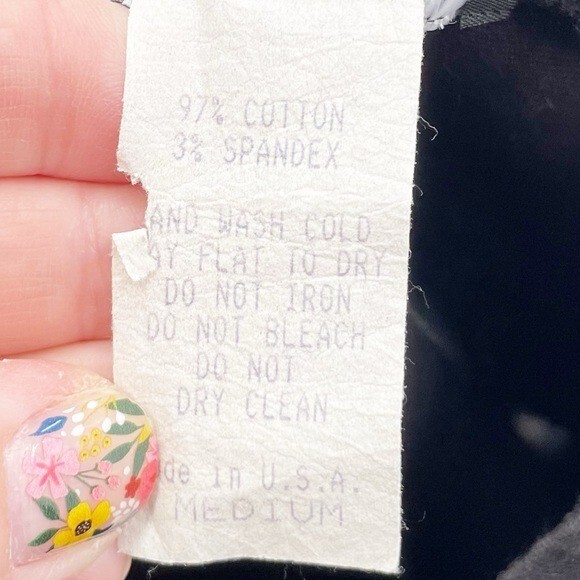 97% COTTON
3% SPANDEX
AND WASH COLD
AY FLAT TO DRY
DO NOT IRON
DO NOT BLEACH
DO NOT
DRY CLEAN
de in U.S.A.
MEDIUM